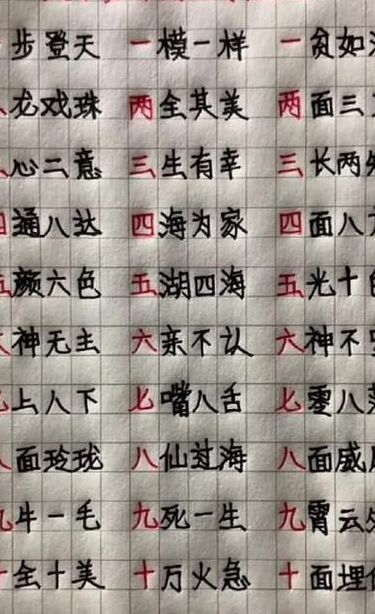 步登天 一模一样 一贫如
龙戏珠 两全其美 两面三
心二意 三生有幸 三长两短
四通八达 四海为家 四面八方
五颜六色 五湖四海 五光十色
六神无主 六亲不认 六神不
七上八下 七嘴八舌 七零八落
八面玲珑 八仙过海 八面威风
九牛一毛 九死一生 九霄云外
十全十美 十万火急 十面埋伏